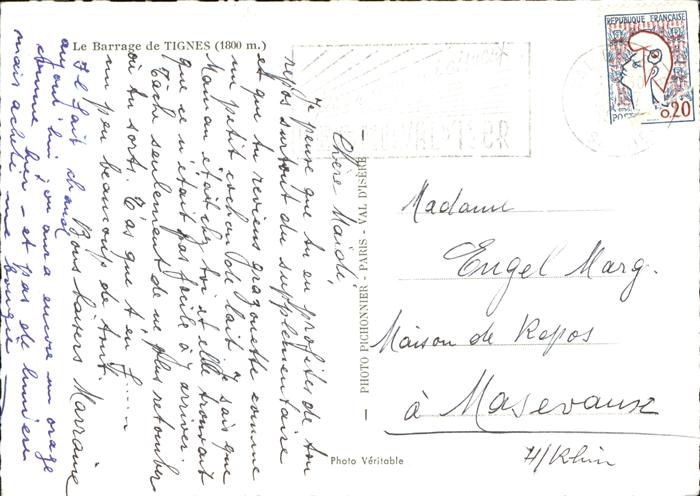 Le Barrage de TIGNES (1800 m.)
REPUBLIQUE FRANÇAISE
POSTES
0,20
Chère Maidi,
Je pense que tu en profites de ton
repos surtout du supplémentaire
et que tu reviens grassouette comme
un petit cochon de lait. Je sais que
Maman était chez toi et elle trouvait
que ce n'était pas facile à y arriver.
Tâche seulement de ne plus retomber
où tu sors. T'as que t'en f.....
un peu beaucoup de tout.
Bons baisers Marraine
Il fait chaud
aujourd'hui, on aura encore un orage
comme hier - et pas de lumière
mais acheté une bougie
PHOTO PICHONNIER - PARIS - VAL D'ISÈRE
Photo Véritable
Madame
Engel Marg.
Maison de Repos
à Masevaux
H/Rhin